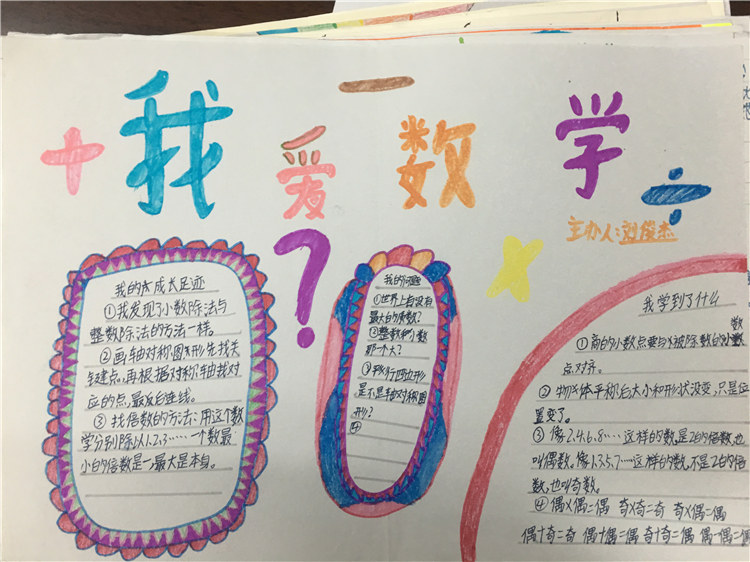 我爱数学
主办人:刘俊杰
我的成长足迹
①我发现了小数除法与
整数除法的方法一样。
②画轴对称图形先找关
键点,再根据对称轴找对
应的点,最后连线。
③找倍数的方法:用这个数
学分别除以1、2、3……一个数最
小的倍数是一,最大是本身。
我的问题
①世界上有没有
最大的质数?
②整数和小数
那一个大?
③平行四边形
是不是轴对称图
形?
④
我学到了什么
①商的小数点要与被除数的小数
点对齐。
②物体平移后大小和形状没变,只是位
置变了。
③像2、4、6、8……这样的数,是2的倍数,也
叫偶数。像1、3、5、7…这样的数,不是2的倍
数,也叫奇数。
④偶×偶=偶 奇×奇=奇 奇×偶=偶
偶+奇=奇 偶+偶=偶 奇+奇=偶 偶-偶=偶